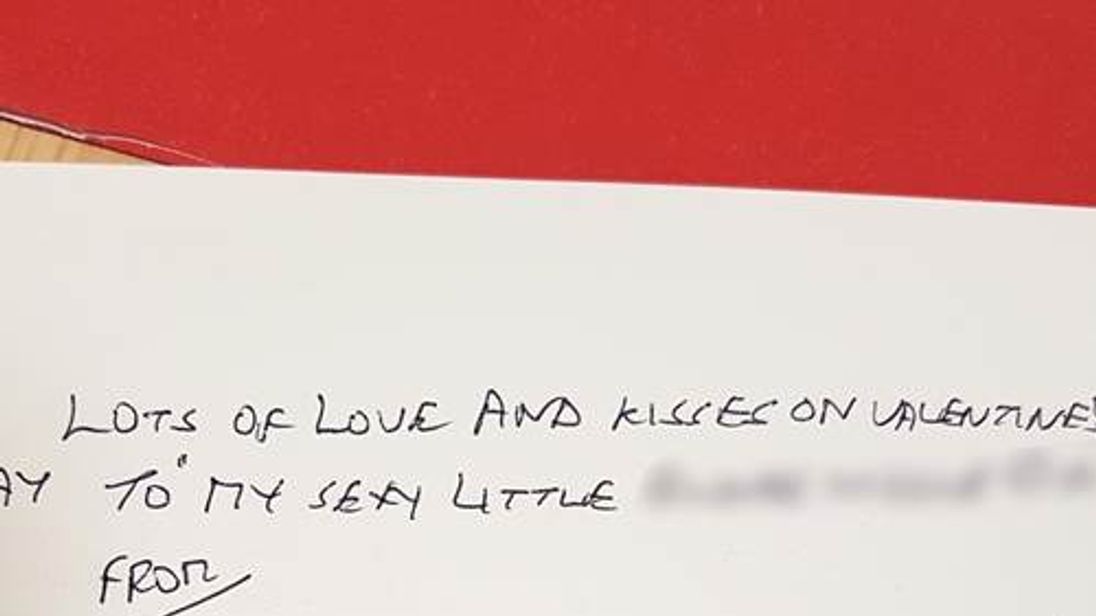 LOTS OF LOVE AND KISSES ON VALENTINE'
AY TO MY SEXY LITTLE
FROM